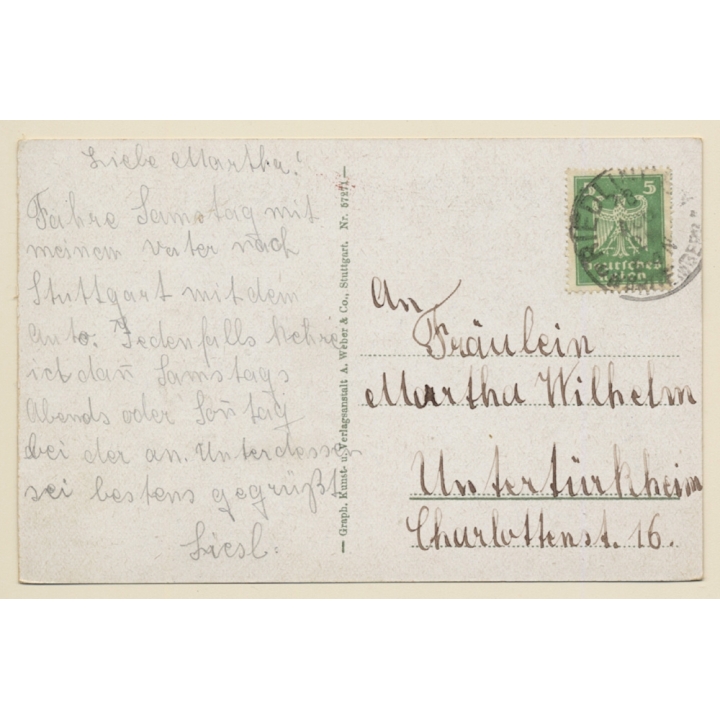 Liebe Martha!
Fahre Samstag mit
meinem vater nach
Stuttgart mit dem
Auto. Jedenfalls kehre
ich dan̄ Samstags
Abends oder Son̄tag
bei der an. Unterdessen
sei bestens gegrüßt
Liesl.
— Graph. Kunst- u. Verlagsanstalt A. Weber & Co., Stuttgart. Nr. 57271 —
5
An
Fräulein
Martha Wilhelm
Untertürkheim
Charlottenst. 16.